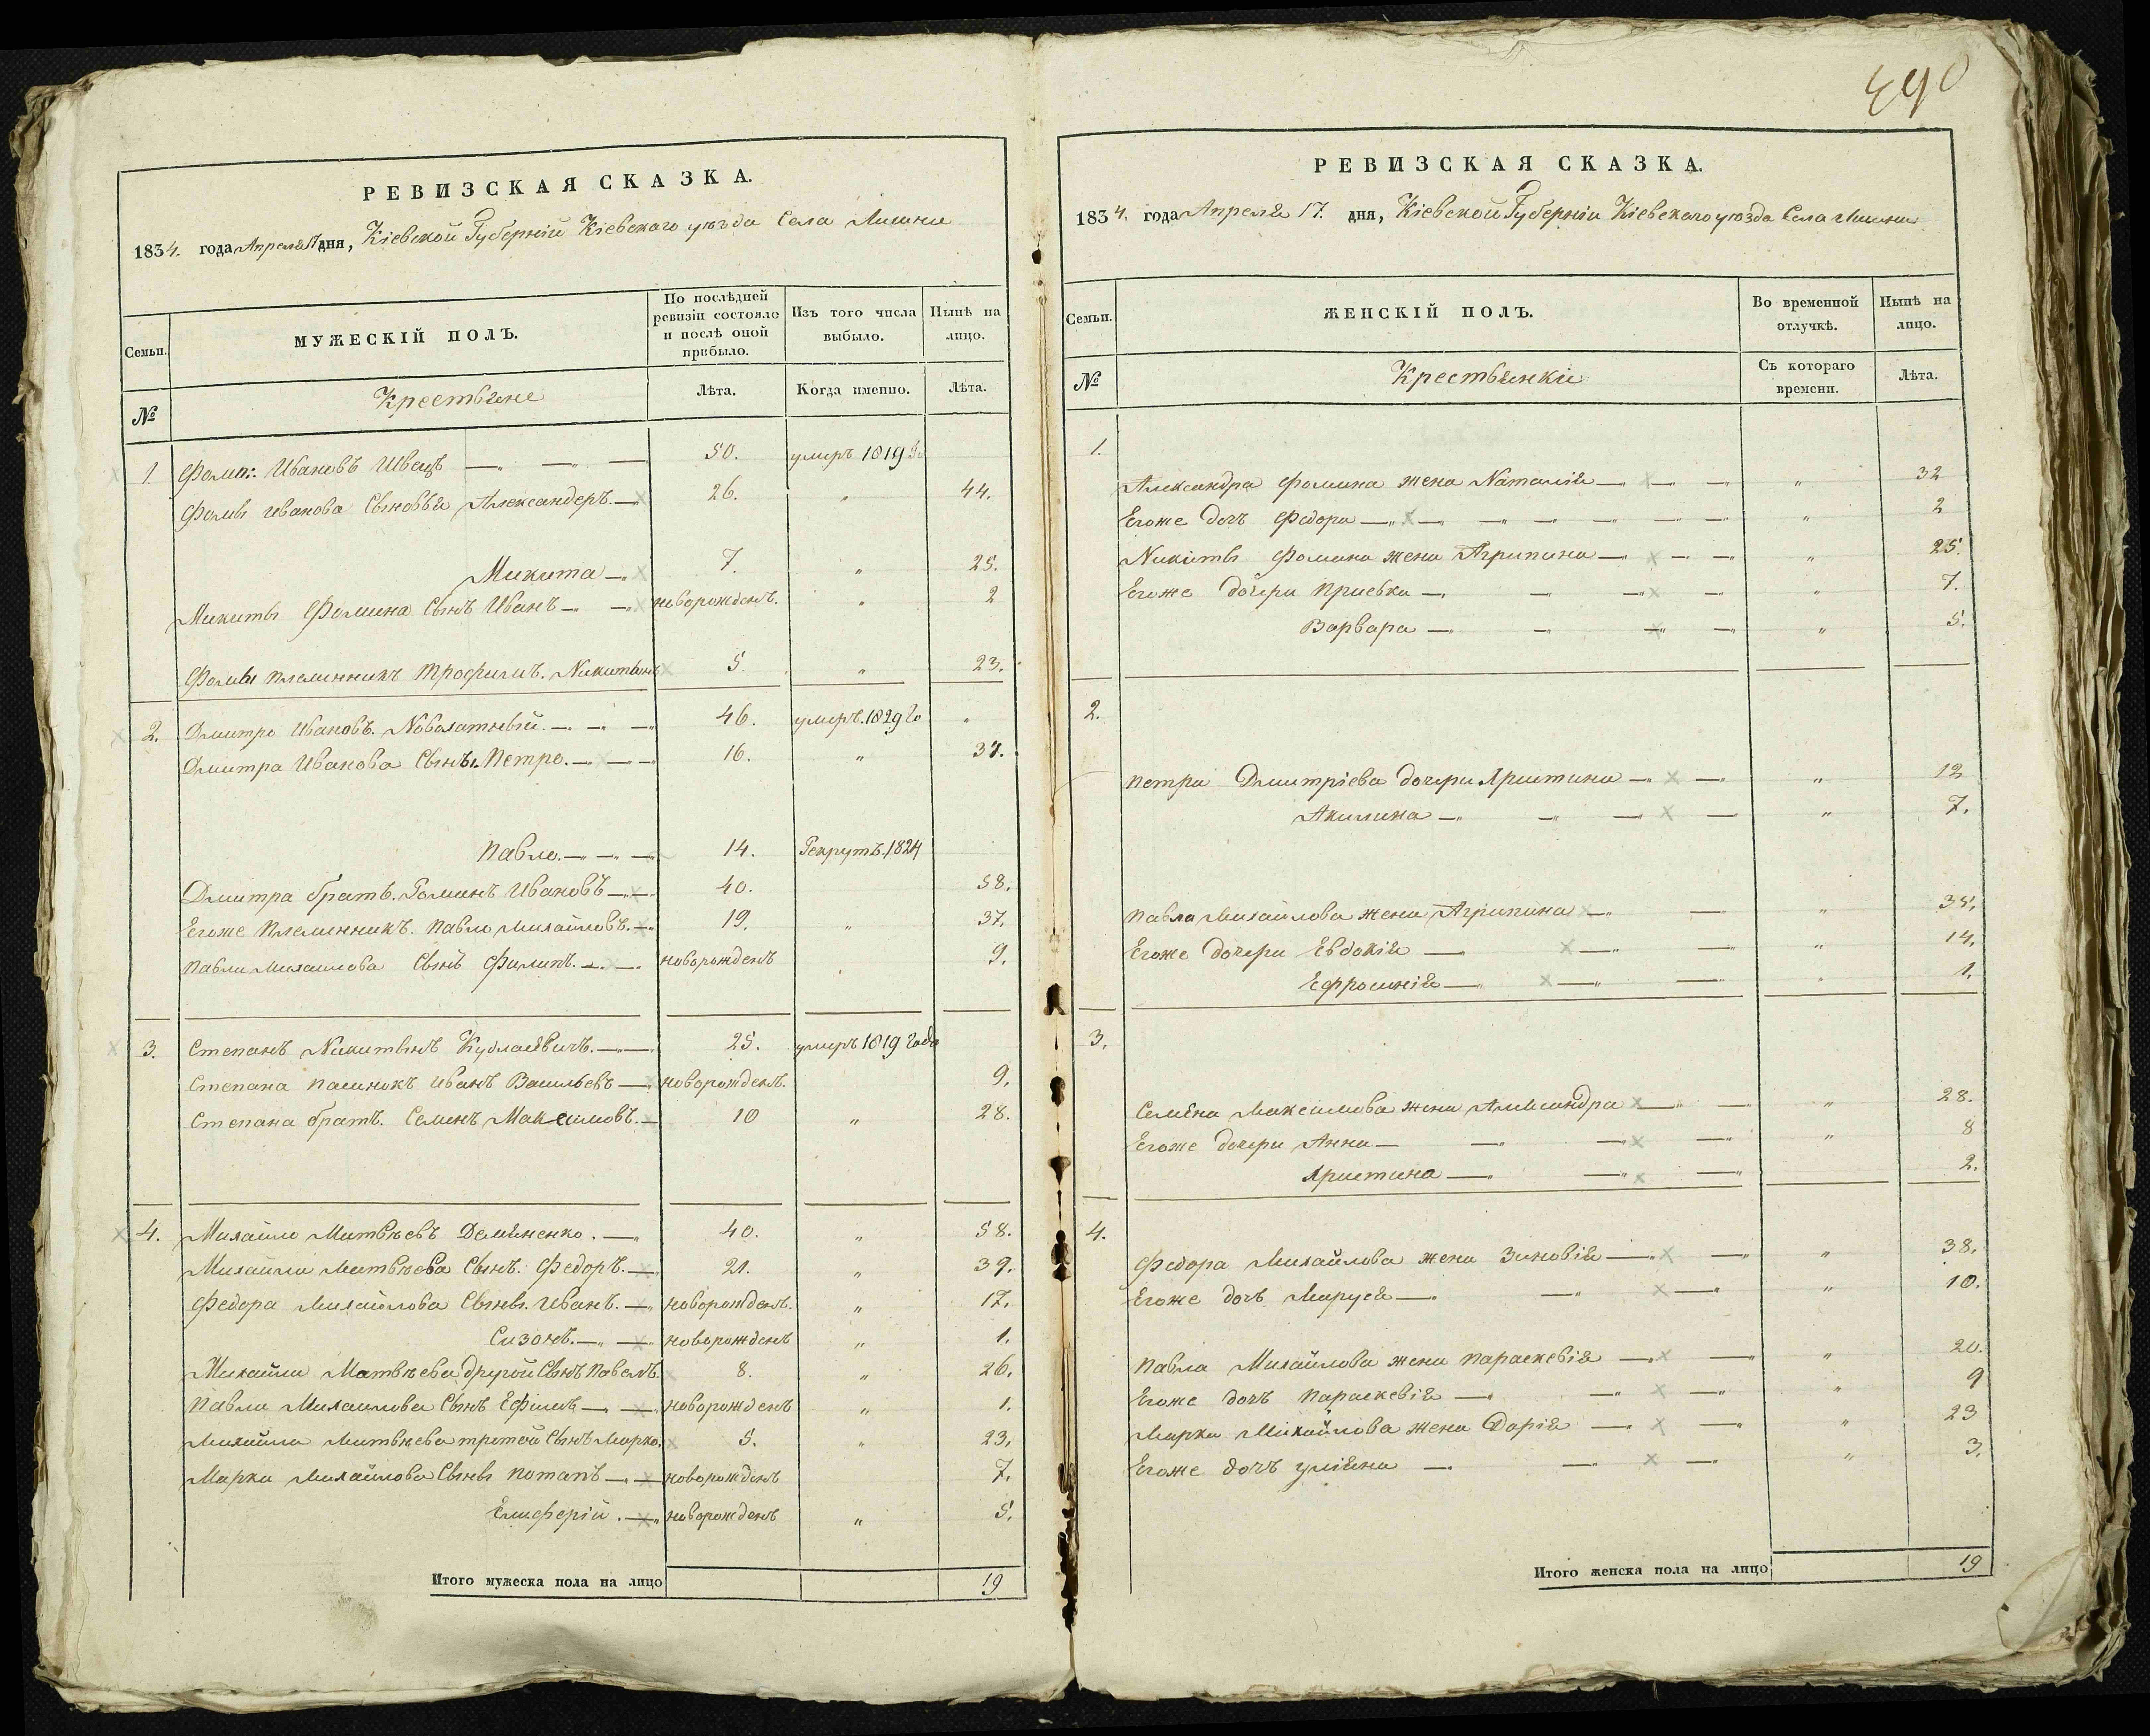 490
РЕВИЗСКАЯ СКАЗКА.
1834. года Апреля 17 дня, Кіевской Губерніи Кіевскаго уѣзда Села Мишни
Семьи.
МУЖЕСКІЙ ПОЛЪ.
По послѣдней ревизіи состояло и послѣ оной прибыло.
Изъ того числа выбыло.
Нынѣ на лицо.
№
Крестьяне
Лѣта.
Когда именно.
Лѣта.
1. Фома Ивановъ Швецъ 50. умеръ 1819
Фомы Иванова Сыновья Александеръ. 26. " 44.
Микита 7. " 25.
Микиты Фомина Сынъ Иванъ новорожденъ. " 2
Фомы племянникъ Трофимъ. Никитинъ 5. " 23.
2. Дмитро Ивановъ. Новохатный. 46. умеръ. 1829 го "
Дмитра Иванова Сыны. Петро. 16. " 34.
Павло. 14. Рекрутъ. 1824
Дмитра братъ. Романъ Ивановъ 40. 58.
Егоже племянникъ. Павло Михайловъ. 19. " 37.
Павла Михайлова Сынъ Филипъ. новорожденъ " 9.
3. Степанъ Никитинъ Кублаевичъ. 25. умеръ 1819 года
Степана пасинокъ Иванъ Васильевъ новорожденъ. 9.
Степана братъ. Семенъ Максимовъ. 10 " 28.
4. Михайло Матвѣевъ Демяненко. 40. " 58.
Михайла Матвѣева Сынъ. Федоръ. 21. " 39.
Федора Михайлова Сыны. Иванъ. новорожденъ. " 17.
Сизонъ. новорожденъ " 1.
Михайла Матвѣева другой Сынъ Павелъ. 8. " 26.
Павла Михайлова Сынъ Ефимъ новорожденъ " 1.
Михайла Матвѣева третой Сынъ Марко. 5. " 23.
Марка Михайлова Сыны Потапъ новорожденъ 7.
Елиферій. новорожденъ " 5.
Итого мужеска пола на лицо 19
РЕВИЗСКАЯ СКАЗКА.
1834. года Апреля 17. дня, Кіевской Губерніи Кіевскаго уѣзда Села Мишни
Семьи.
ЖЕНСКІЙ ПОЛЪ.
Во временной отлучкѣ.
Нынѣ на лицо.
№
Крестьянки
Съ котораго времени.
Лѣта.
1.
Александра Фомина жена Наталія " 32
Егоже дочь Федора " 2
Никиты Фомина жена Агрипина " 25.
Егоже дочери Приська " 7.
Варвара " 5.
2.
Петра Дмитріева дочери Христина " 12
Акилина " 7.
Павла Михайлова жена Агрипина " 35.
Егоже дочери Евдокія " 14.
Ефросинія " 1.
3.
Семена Максимова жена Александра " 28.
Егоже дочери Анна " 8
Христина 2.
4.
Федора Михайлова жена Зиновія " 38.
Егоже дочъ Маруся " 10.
Павла Михайлова жена Параскевія " 20.
Егоже дочъ Параскевія " 9
Марка Михайлова жена Дарія " 23
Егоже дочъ Уліяна " 3.
Итого женска пола на лицо 19